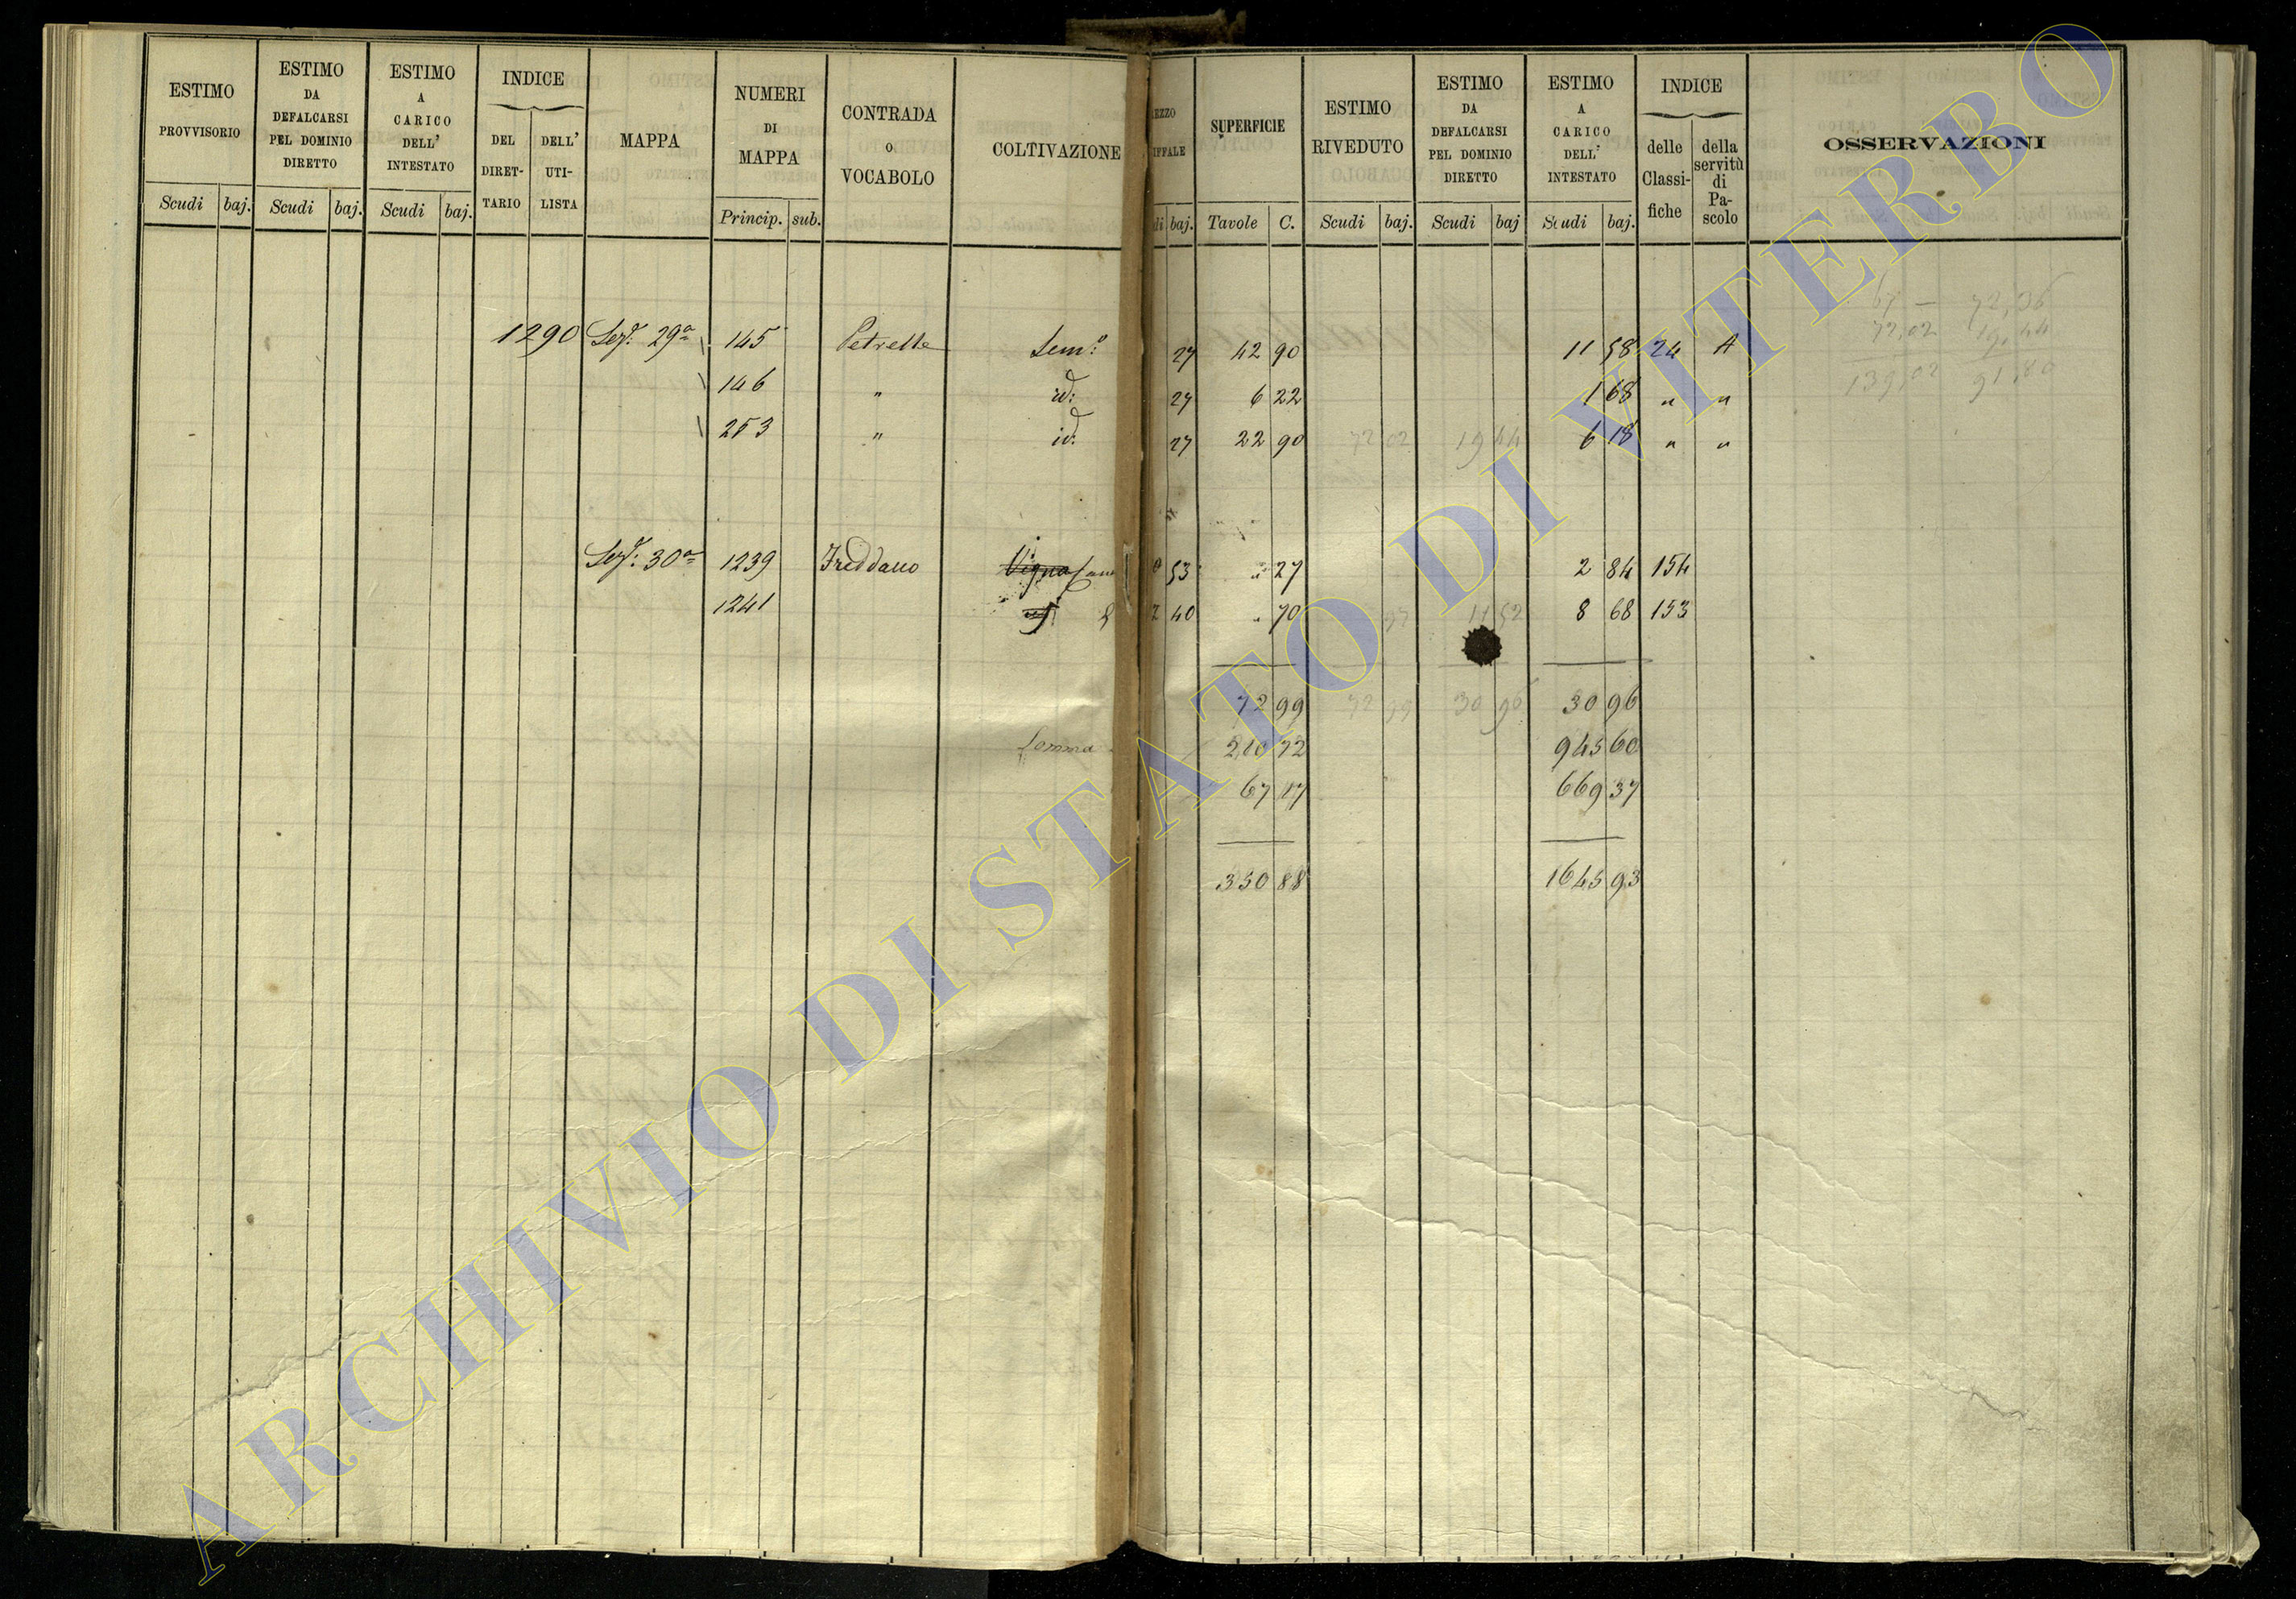 ESTIMO PROVVISORIO Scudi baj.
ESTIMO DA DEFALCARSI PEL DOMINIO DIRETTO Scudi baj.
ESTIMO A CARICO DELL' INTESTATO Scudi baj.
INDICE DEL DIRET-TARIO DELL' UTI-LISTA
MAPPA
NUMERI DI MAPPA Princip. sub.
CONTRADA O VOCABOLO
COLTIVAZIONE
EZZO IFFALE di baj.
SUPERFICIE Tavole C.
ESTIMO RIVEDUTO Scudi baj.
ESTIMO DA DEFALCARSI PEL DOMINIO DIRETTO Scudi baj
ESTIMO A CARICO DELL' INTESTATO Scudi baj.
INDICE delle Classi-fiche della servitù di Pa-scolo
OSSERVAZIONI
67 — 72,36
72,02 19,44
139,02 91,80
1290 Sez: 29a 145 Petrelle Sem:o 27 42 90 11 58 24 A
146 " id: 27 6 22 1 68 " "
253 " id: 27 22 90 72 02 19 44 6 18 " "
Sez: 30a 1239 Freddano Vigna 53 " 27 2 84 154
1241 40 " 70 97 11 52 8 68 153
72 99 72 99 30 96 30 96
Somma 210 72 945 60
67 17 669 37
350 88 1645 93
ARCHIVIO DI STATO DI VITERBO